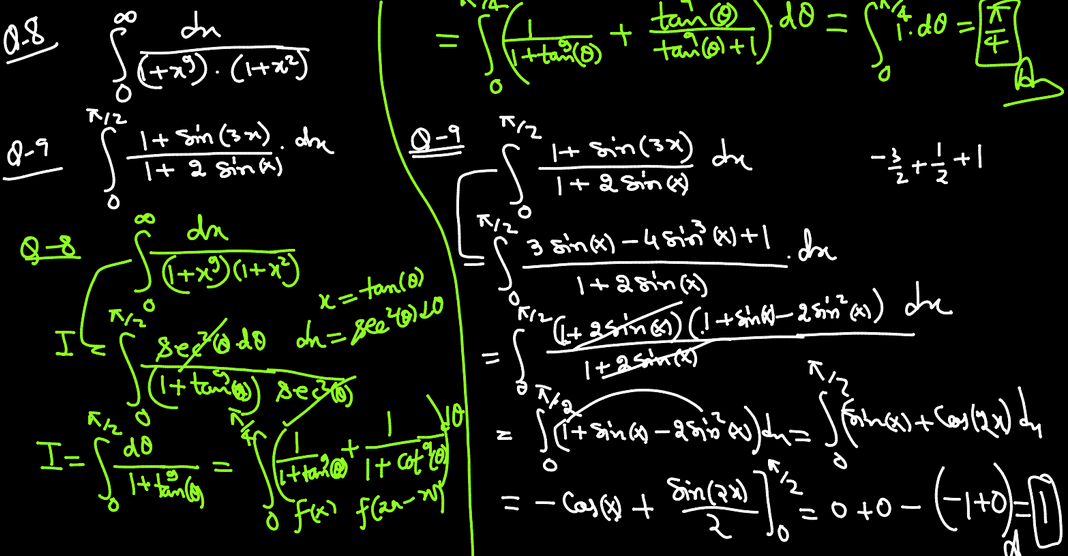 Q-8 ∫₀^∞ dx / (1+x⁹)·(1+x²)
Q-9 ∫₀^{π/2} (1+sin(3x)) / (1+2 sin(x)) · dx
Q-8 ∫₀^∞ dx / (1+x⁹)(1+x²)
x = tan(θ)
dx = sec²(θ) dθ
I = ∫₀^{π/2} sec²θ dθ / (1+tan⁹(θ)) sec²(θ)
I = ∫₀^{π/2} dθ / (1+tan⁹(θ)) = ∫₀^{π/4} (1/(1+tan⁹(θ)) + 1/(1+cot⁹(θ))) dθ
f(x) f(2a-x)
= ∫₀^{π/4} (1/(1+tan⁹(θ)) + tan⁹(θ)/(tan⁹(θ)+1)) · dθ = ∫₀^{π/4} 1·dθ = π/4
Q-9 ∫₀^{π/2} (1+sin(3x)) / (1+2 sin(x)) dx
-3/2 + 1/2 + 1
= ∫₀^{π/2} (3 sin(x) - 4 sin³(x) + 1) / (1+2 sin(x)) · dx
= ∫₀^{π/2} (1+2 sin(x)) (1+sin(x) - 2 sin²(x)) / (1+2 sin(x)) dx
= ∫₀^{π/2} (1+sin(x) - 2 sin²(x)) dx = ∫₀^{π/2} (sin(x) + cos(2x)) dx
= -cos(x) + sin(2x)/2 ]₀^{π/2} = 0+0-(-1+0) = 1